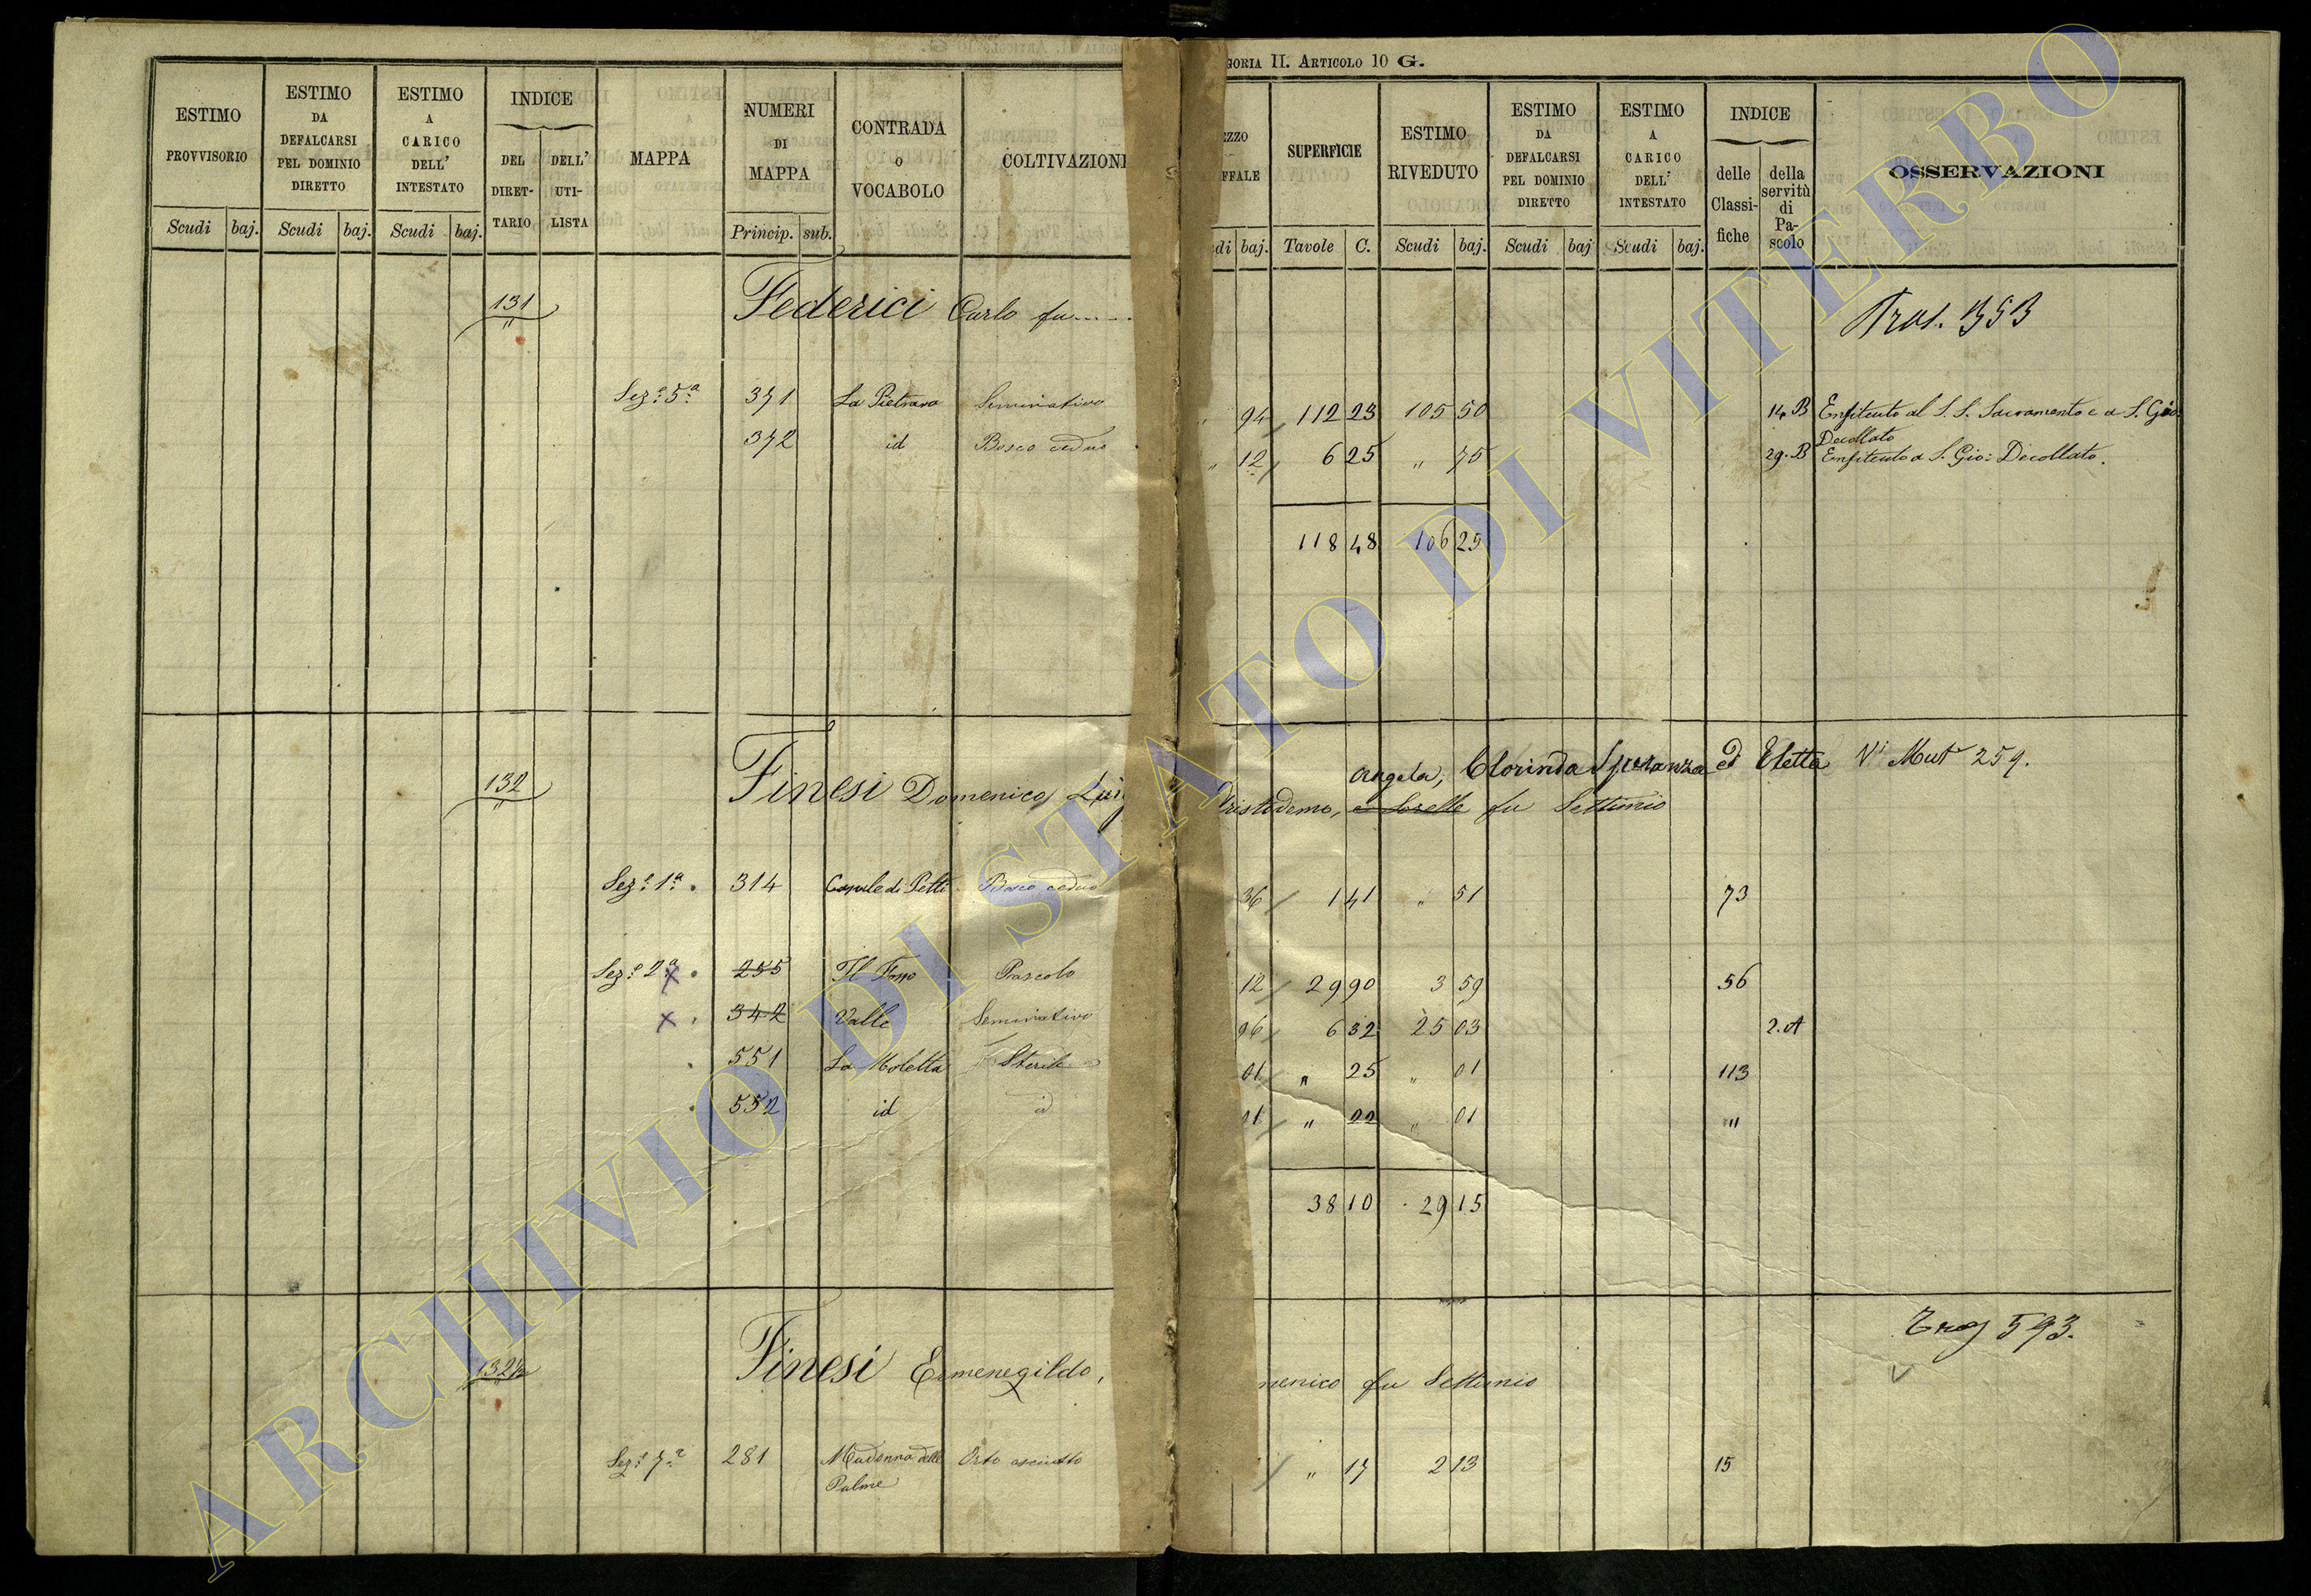 GORIA II. ARTICOLO 10 G.
ESTIMO PROVVISORIO Scudi baj.
ESTIMO DA DEFALCARSI PEL DOMINIO DIRETTO Scudi baj.
ESTIMO A CARICO DELL' INTESTATO Scudi baj.
INDICE DEL DIRETTARIO DELL' UTILISTA
MAPPA
NUMERI DI MAPPA Princip. sub.
CONTRADA O VOCABOLO
COLTIVAZIONI
EZZO FFALE di baj.
SUPERFICIE Tavole C.
ESTIMO RIVEDUTO Scudi baj.
ESTIMO DA DEFALCARSI PEL DOMINIO DIRETTO Scudi baj
ESTIMO A CARICO DELL' INTESTATO Scudi baj.
INDICE delle Classifiche della servitù di Pascolo
OSSERVAZIONI
131 Federici Carlo fu
353
Sez.e 5a 371 La Pietrara Seminativo 94 112 23 105 50 14 B Enfiteuto al S. S. Sacramento e a S. Gio:
Decollato
372 id Bosco ceduo " 12 6 25 " 75 29. B Enfiteuto a S. Gio: Decollato.
118 48 106 25
Angela, Clorinda Speranza ed Eletta Vi Mut 259.
132 Finesi Domenico, Luig ristodemo, e Sorelle fu Settimio
Sez.e 1a 314 Casale di Petti Bosco ceduo 36 1 41 " 51 73
Sez.e 2a x 255 Il Fosso Pascolo 12 29 90 3 59 56
x 342 Valle Seminativo 96 6 32 25 03 2. A
551 La Moletta Sterile 01 " 25 " 01 113
552 id id 01 " 22 " 01 "
38 10 29 15
593.
132½ Finesi Ermenegildo, menico fu Settimio
Sez.e 7a 281 Madonna delle Orto asciutto " 17 2 13 15
Palme
ARCHIVIO DI STATO DI VITERBO